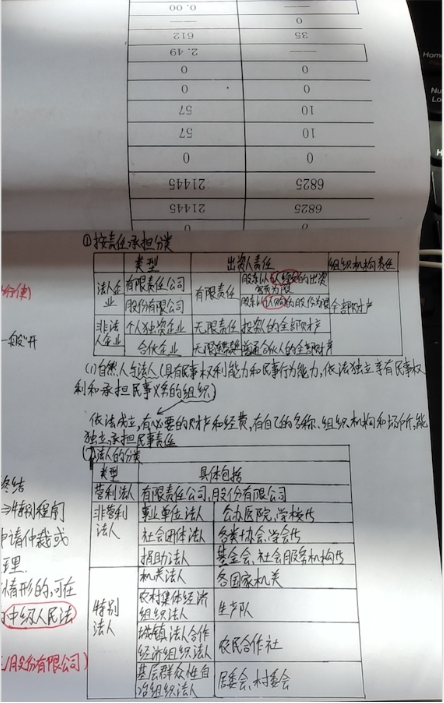 0.00 —
612 35
2.49 —
0 0
0 0
57 10
57 10
0 0
21445 6825
21445 6825
①按责任承担分类
类型 出资人责任 组织机构责任
法人企业 有限责任公司 有限责任 股东以认缴的出资额为限
股份有限公司 股东以认购的股份为限 全部财产
非法人企业 个人独资企业 无限责任 投资人的全部财产
合伙企业 无限 普通合伙人的全部财产
(1)自然人与法人(具有民事权利能力和民事行为能力,依法独立享有民事权
利和承担民事义务的组织。)
依法成立,有必要的财产和经费,有自己的名称、组织机构和场所,能
独立承担民事责任
法人的分类
类型 具体包括
营利法人 有限责任公司,股份有限公司
非营利法人 事业单位法人 公办医院,学校传
社会团体法人 各类协会,学会传
捐助法人 基金会,社会服务机构传
特别法人 机关法人 各国家机关
农村集体经济组织法人 生产队
城镇法合作经济组织法人 农民合作社
基层群众性自治组织法人 居委会,村委会
一般"开
终结
特别程序
申请仲裁或
理
情形的,可在
中级人民法
股份有限公司)